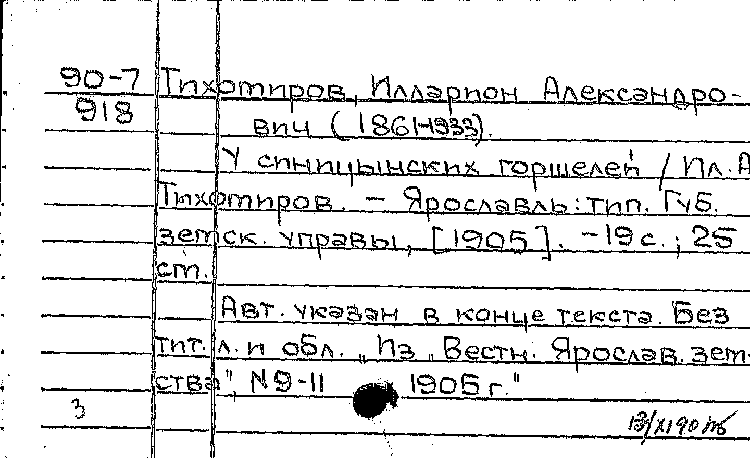 90-7 Тихомиров, Илларион Александро-
918 вич (1861-1933).
У синицынских горшелей / Ил. А
Тихомиров. – Ярославль: тип. Губ.
земск. управы, [1905]. -19 с.; 25
ст.
Авт. указан в конце текста. Без
тит. л. и обл. „Из „Вестн. Ярослав. зем-
ства", N9-11 1905 г."
3